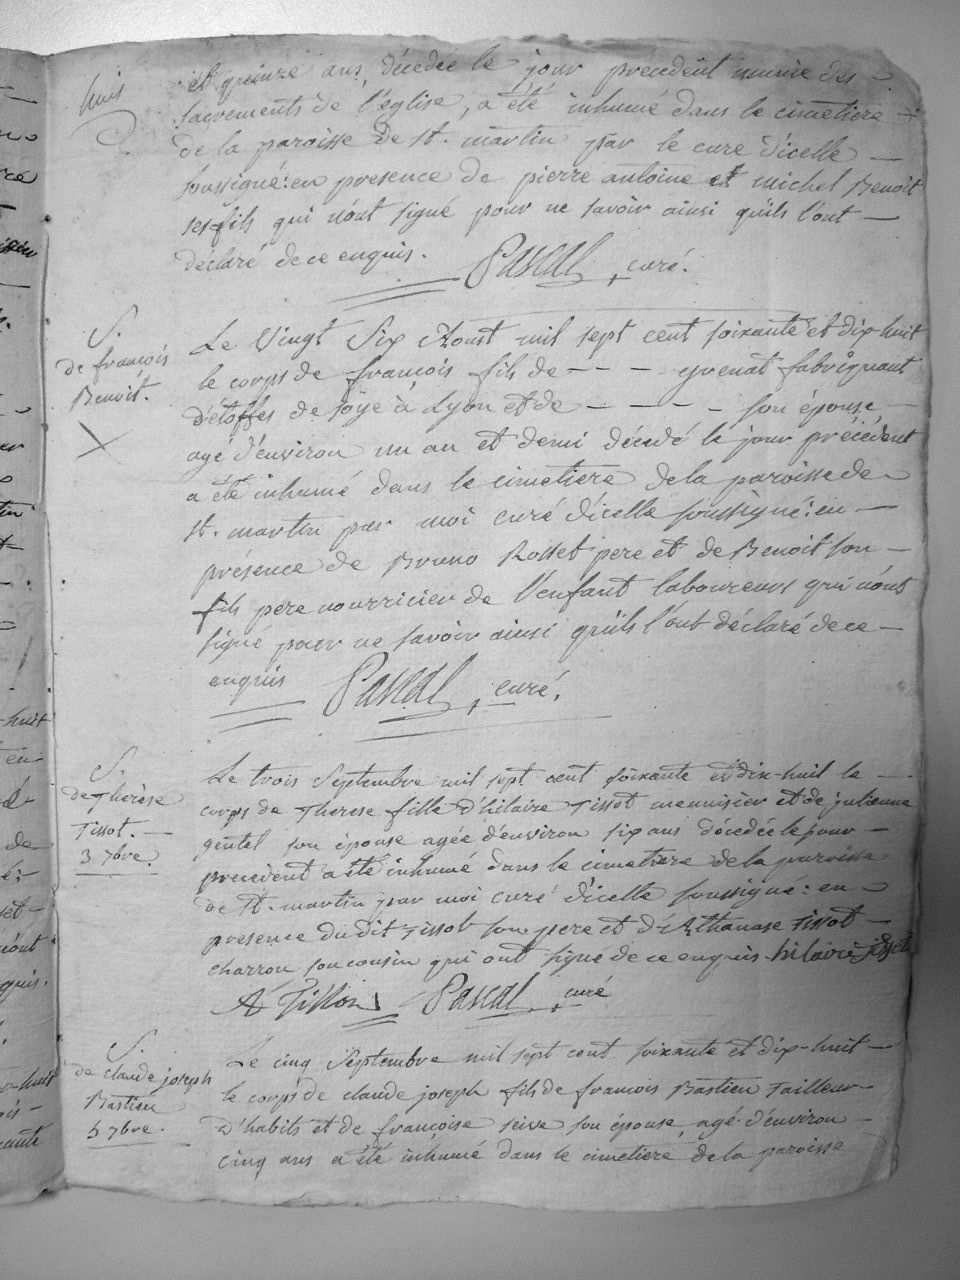 huis
et quinze ans, décédée le jour précédent munie des
sacrements de l'église, a été inhumé dans le cimetiere
de la paroisse de st. martin par le curé d'icelle —
soussigné: en presence de pierre antoine et michel Benoit
ses fils qui n'ont signé pour ne savoir ainsi qu'ils l'ont —
déclaré de ce enquis. Pascal, curé.
S.
de francois
Benoit.
Le Vingt Six Aoust mil sept cent soixante et dix-huit
le corps de françois fils de - - - grenat fabriquant
d'étoffes de soye à Lyon et de - - - - son épouse
agé d'environ un an et demi décédé le jour précédent
a été inhumé dans le cimetiere de la paroisse de
st. martin par moi curé d'icelle soussigné: en —
présence de Bruno Rosset pere et de Benoit son —
fils pere nourricier de l'enfant laboureurs qui n'ont
signé pour ne savoir ainsi qu'ils l'ont déclaré de ce —
enquis Pascal, curé.
S.
de Therèse
Tissot. —
3 7bre.
Le trois Septembre mil sept cent soixante et dix-huit le —
corps de Therese fille d'hilaire Tissot menuisier et de julienne
gentel son épouse agée d'environ six ans décédée le jour —
precedent a été inhumé dans le cimetiere de la paroisse
de St. martin par moi curé d'icelle soussigné: en —
presence du dit Tissot son pere et d'Athanase Tissot —
charron son cousin qui ont signé de ce enquis hilaire tissot
A Tissot Pascal, curé
S.
de claude joseph
Bastien
5 7bre.
Le cinq Septembre mil sept cent soixante et dix-huit —
le corps de claude joseph fils de francois Bastien Tailleur
d'habits et de françoise seive son épouse, agé d'environ —
cinq ans a été inhumé dans le cimetiere de la paroisse